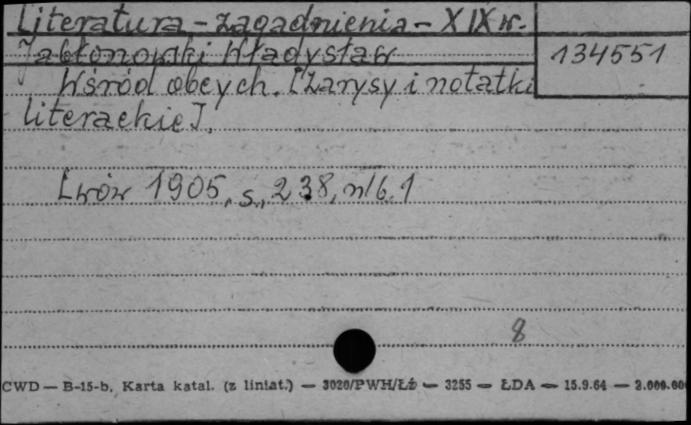 Literatura - zagadnienia - XIX w.
Jabłonowski Władysław
134551
Wśród obcych. [Zarysy i notatki
literackie].
Lwów 1905, s., 238, nlb. 1
8
CWD — B-15-b, Karta katal. (z liniat.) — 3020/PWH/Łż — 3255 — ŁDA — 15.9.64 — 2.000.00